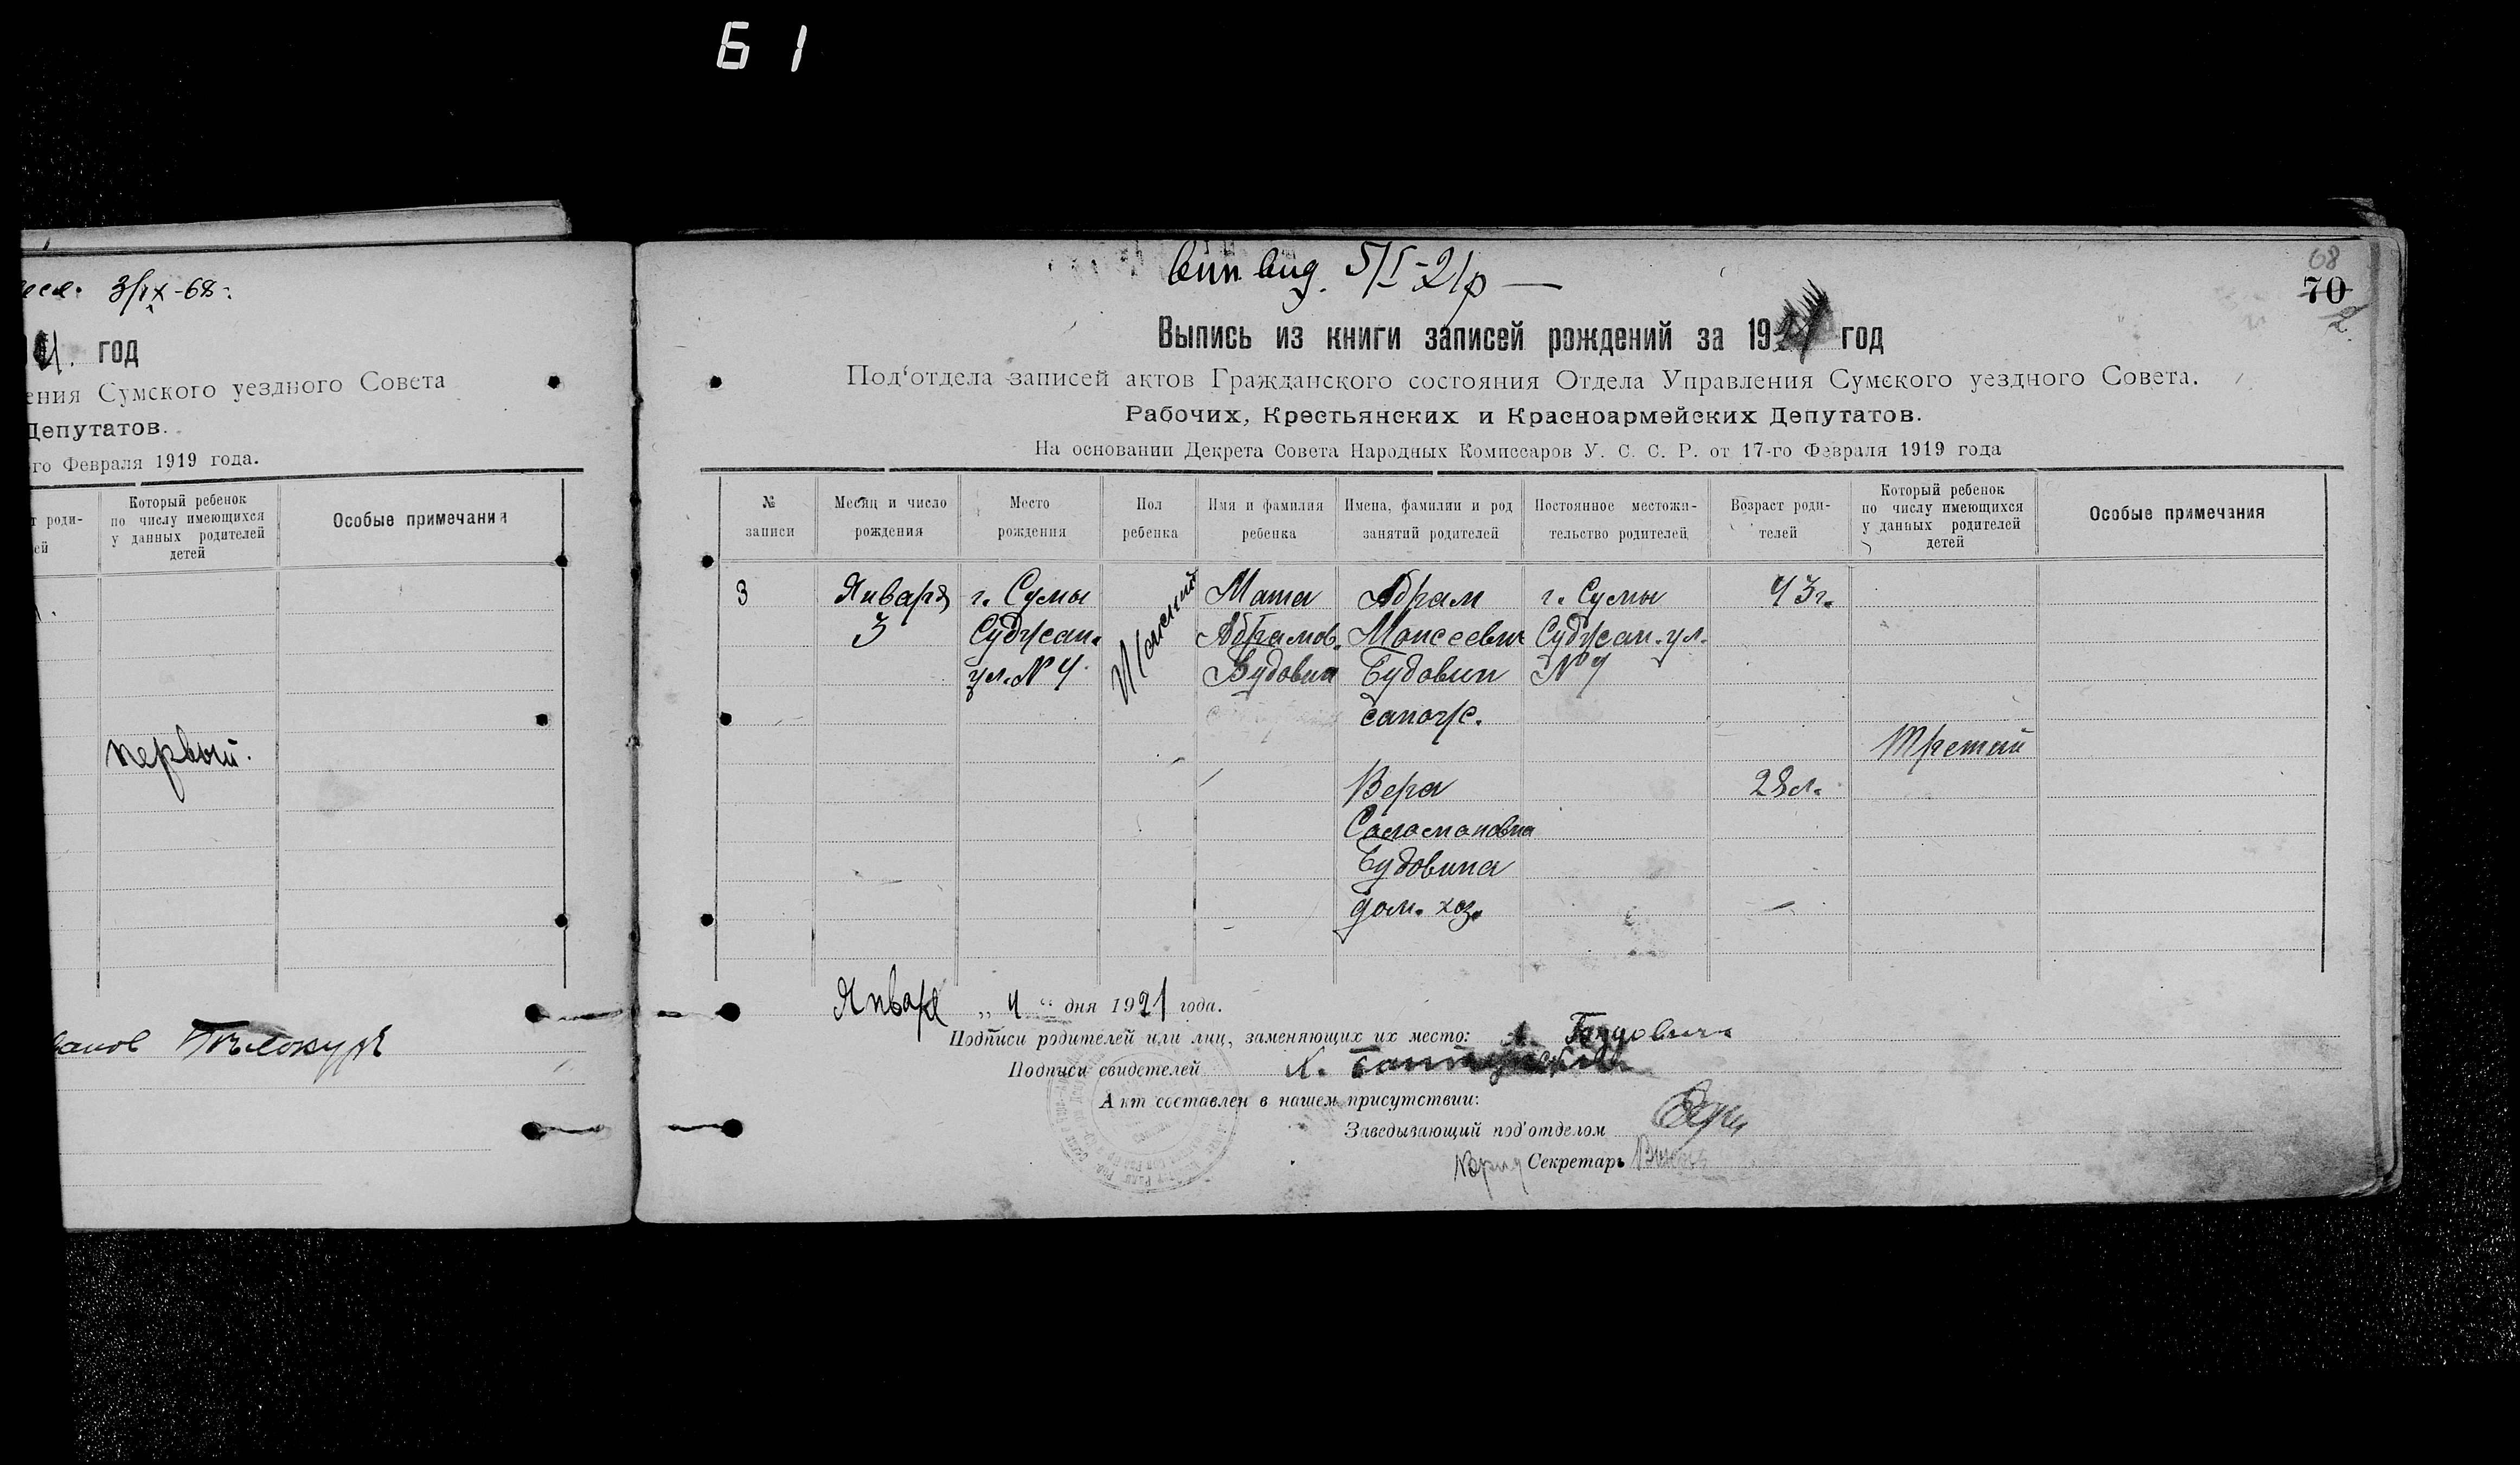 61
3/IX-68.
год
ения Сумского уездного Совета
Депутатов.
го Февраля 1919 года.
т роди-
ей
Который ребенок
по числу имеющихся
у данных родителей
детей
Особые примечания
первый.
вып выд. 5/I-21р
68
70
2
Выпись из книги записей рождений за 1921 год
Под‘отдела записей актов Гражданского состояния Отдела Управления Сумского уездного Совета.
Рабочих, Крестьянских и Красноармейских Депутатов.
На основании Декрета Совета Народных Комиссаров У. С. С. Р. от 17-го Февраля 1919 года
№
записи
Месяц и число
рождения
Место
рождения
Пол
ребенка
Имя и фамилия
ребенка
Имена, фамилии и род
занятий родителей
Постоянное местожи-
тельство родителей
Возраст роди-
телей
Который ребенок
по числу имеющихся
у данных родителей
детей
Особые примечания
3
Января
3
г. Сумы
Суджан.
ул. № 4
Женский
Маша
Абрамов.
Будовина
Абрам
Моисеевич
Будовин
сапож.
Вера
Соломоновна
Будовина
дом. хоз.
г. Сумы
Суджан. ул.
№ 4
43 г.
28 л.
Третий
Января „ 4 “ дня 1921 года.
Подписи родителей или лиц, заменяющих их место: А. Будович
Подписи свидетелей
Акт составлен в нашем присутствии:
Заведывающий под‘отделом
Секретарь